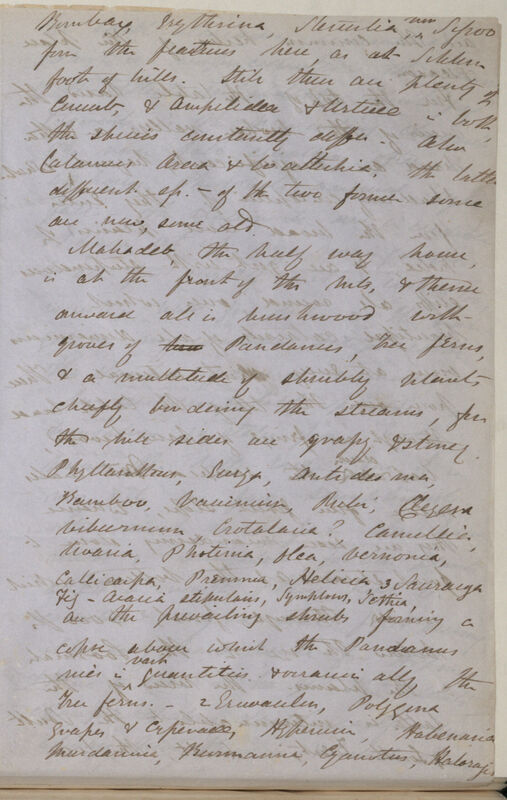 Bombax, Erythrina, Sterculia, new
form the features here, as at
foot of hills. Still there are plenty of
Cucurb, & Ampelideæ & Urticeæ in both,
the species constantly differ. Also
Calamus Areca & Wallichia, the latter
different sp. - of the two former some
are new, some old.
Mahadeb, the half way house,
is at the front of the hills, & thence
onward all is brushwood with
groves of Pandanus, Tree ferns,
& a multitude of shrubby plants
chiefly bordering the streams, for
the hill sides are grassy & stoney.
Phyllanthus, Eurya, Antidesma
Bamboo, Vaccinium, Rubi,
Viburnum Crotalaria? Camellia,
Uvaria, Photinia, Olea, Vernonia,
Callicarpa, Premna, Helicia 3 Saurauja
Fig - Acacia stipulata, Symplocos,
are the prevailing shrubs forming a
copse above which the Pandanus
rises in vast quantities & occasionally the
Tree ferns. - 2 Eriocaulon, Polygona
Grapes & Cyperaceæ, Hyperica, Habenaria
Murdannia, Burmannia Cyanotis, Haloragis